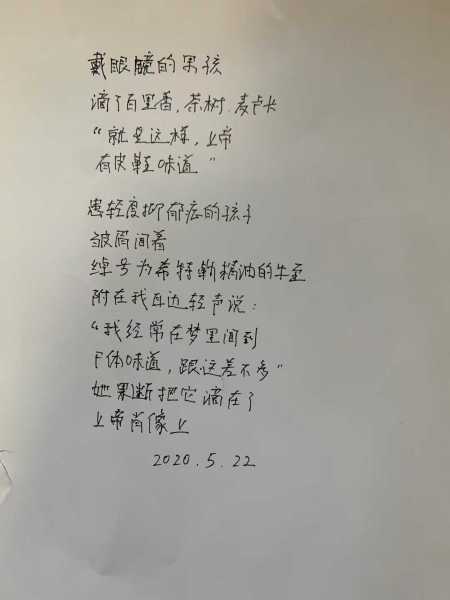 戴眼镜的男孩
滴了百里香,茶树.麦卢卡
“就是这样,上帝
有皮鞋味道”
患轻度抑郁症的孩子
皱眉闻着
绰号为希特勒精油的牛至
附在我耳边轻声说:
“我经常在梦里闻到
尸体味道,跟这差不多”
她果断把它滴在了
上帝肖像上
2020.5.22